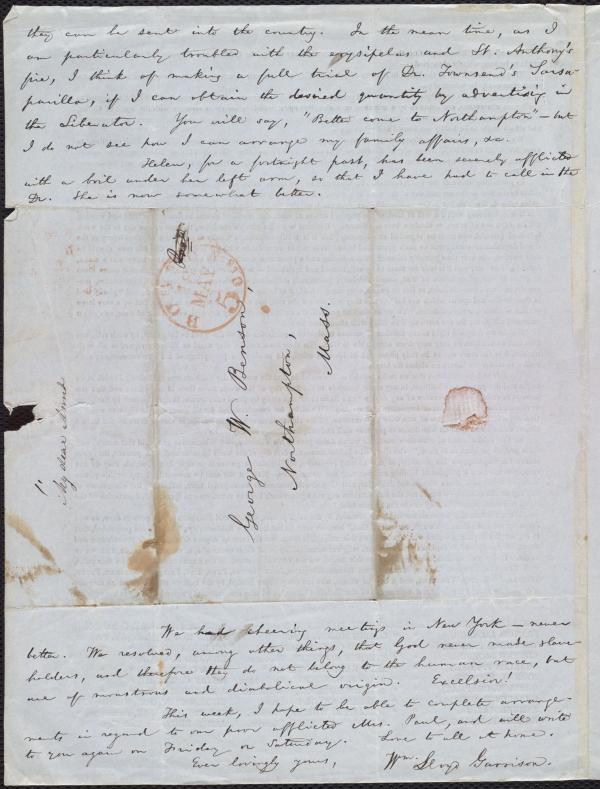 they can be sent into the country. In the mean time, as I
am particularly troubled with the erysipelas and St. Anthony's
fire, I think of making a full trial of Dr. Townsend's Sarsa-
parilla, if I can obtain the desired quantity by advertising in
the Liberator. You will say, "Better come to Northampton"—but
I do not see how I can arrange my family affairs, &c.
Helen, for a fortnight past, has been severely afflicted
with a boil under her left arm, so that I have had to call in the
Dr. She is now somewhat better.
Paid
BOSTON
MAY
5
George W. Benson,
Northampton,
Mass.
My dear
We had cheering meetings in New York—never
better. We resolved, among other things, that God never made slave-
holders, and therefore they do not belong to the human race, but
are of monstrous and diabolical origin. Excelsior!
This week, I hope to be able to complete arrange-
ments in regard to our poor afflicted Mrs. Paul, and will write
to you again on Friday or Saturday. Love to all at home.
Ever lovingly yours, Wm. Lloyd Garrison.